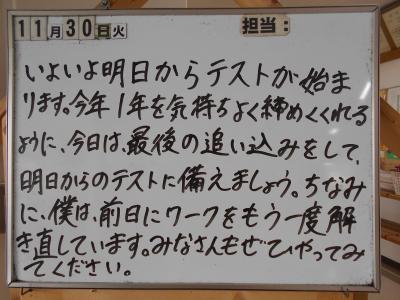 11月30日火 担当:
いよいよ明日からテストが始ま
ります。今年1年を気持ちよく締めくくれる
ように、今日は、最後の追い込みをして、
明日からのテストに備えましょう。ちなみ
に、僕は、前日にワークをもう一度解
き直しています。みなさんもぜひやってみ
てください。